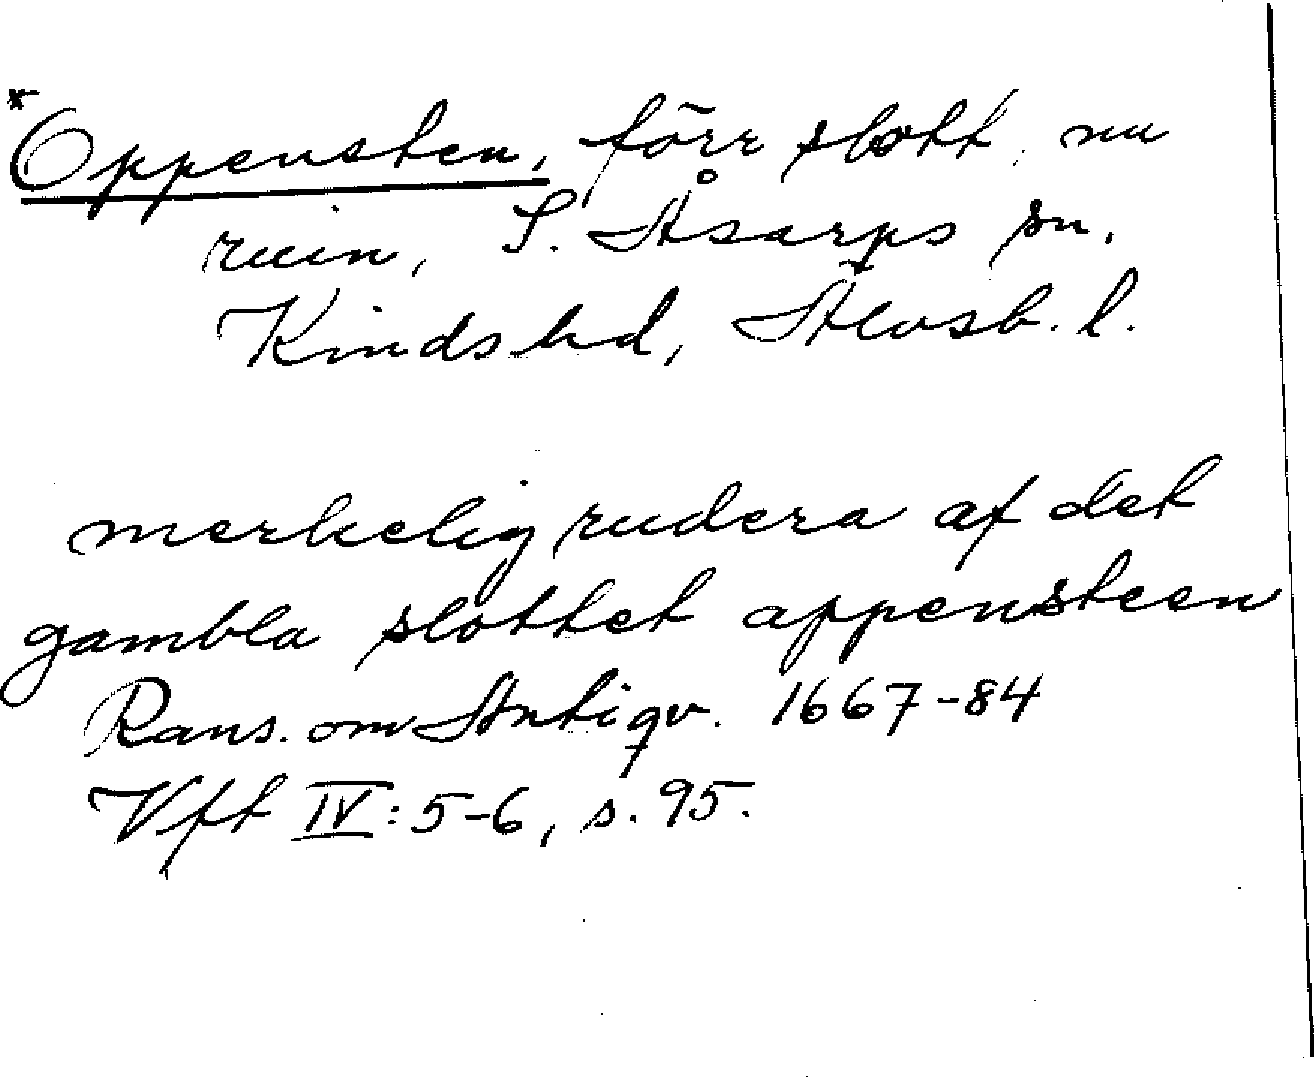 *Oppensten, förr slott, nu
ruin, S. Åsarps sn,
Kinds hd, Älvsb. l.
merkelig rudera af det
gambla slottet appensteen
Rans. om Antiqv. 1667-84
Vft IV: 5-6, s. 95.